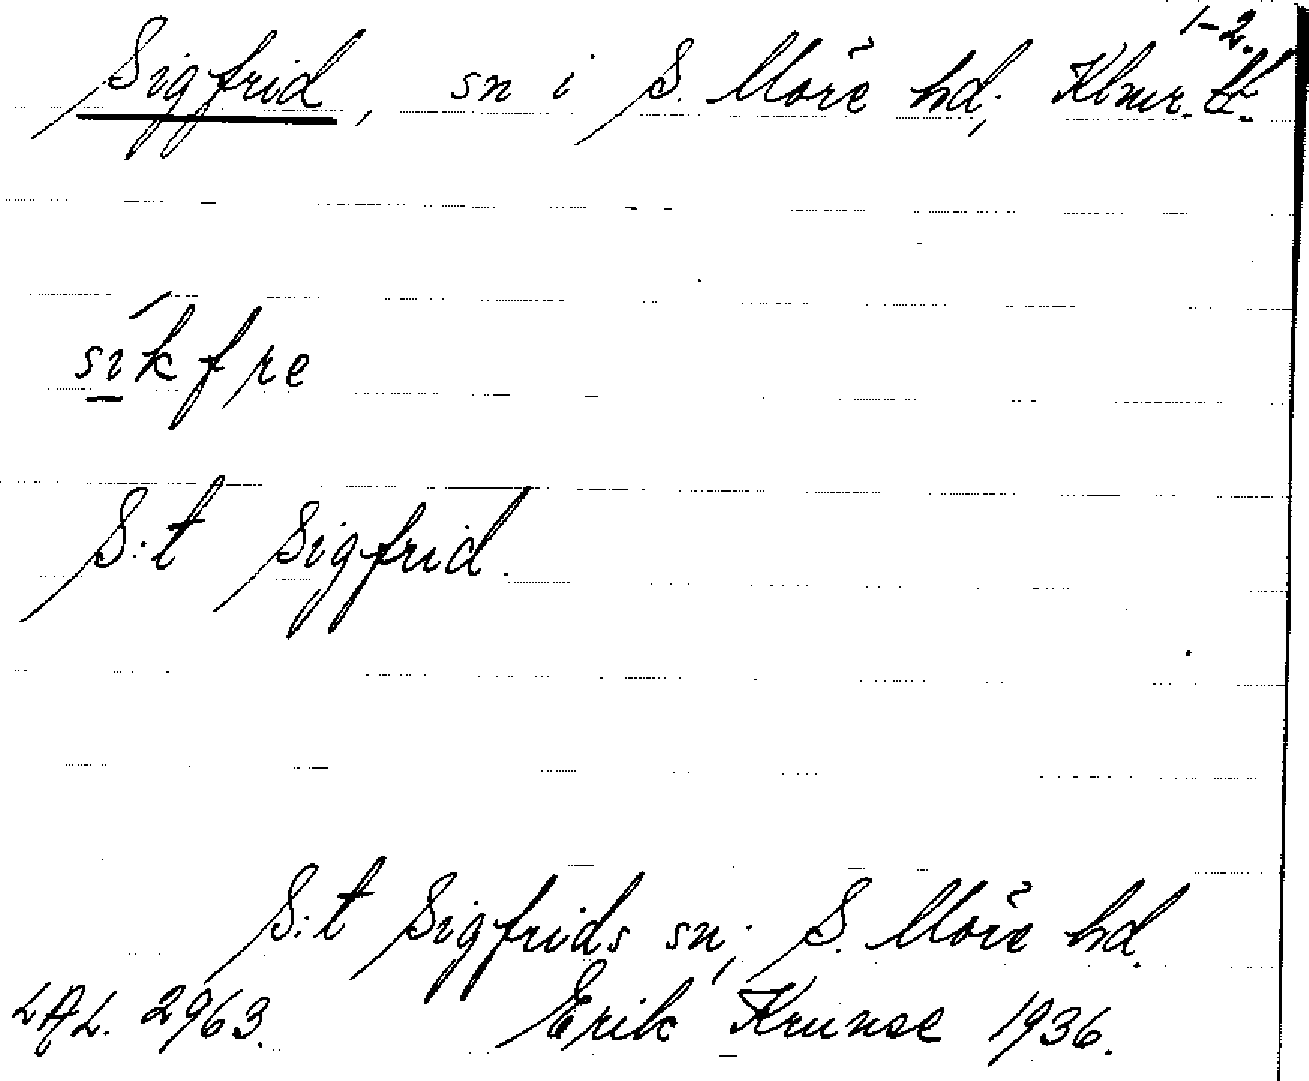 1-2.
Sigfrid, sn i S. Möre hd; Klmr. l.
síkfre
S:t Sigfrid.
S:t Sigfrids sn; S. Möre hd.
LAL. 2963. Erik Kruuse 1936.